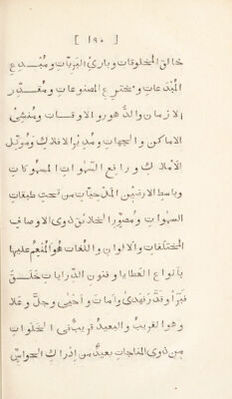 [ ١٩٠ ]
خالق المخلوقات وبارئ البريّات ومُبْدِع
المُبْدَعات ومخترع المصنوعات ومقدّر
الازمان والدّهور والاوقات ومُنشئ
الاماكن والجهات ومُدبّر الافلاك وموكّل
الاملاك ورافع السّموات المسموكات
وباسط الارضين المدحيّات من تحت طبقات
السموات ومُصوّر الخلائق ذوى الاوصاف
المختلفات والالوان واللّغات هو المُنعم عليها
بانواع العطايا وفنون الدّرايات خَلَقَ
فبَرَأَ وقدّر فهدى وامات وأحيى وجلّ وعَلا
وهو القريب والبعيد قريبٌ فى الخلوات
من ذوى المناجات بعيدٌ من إدراك الحواسّ